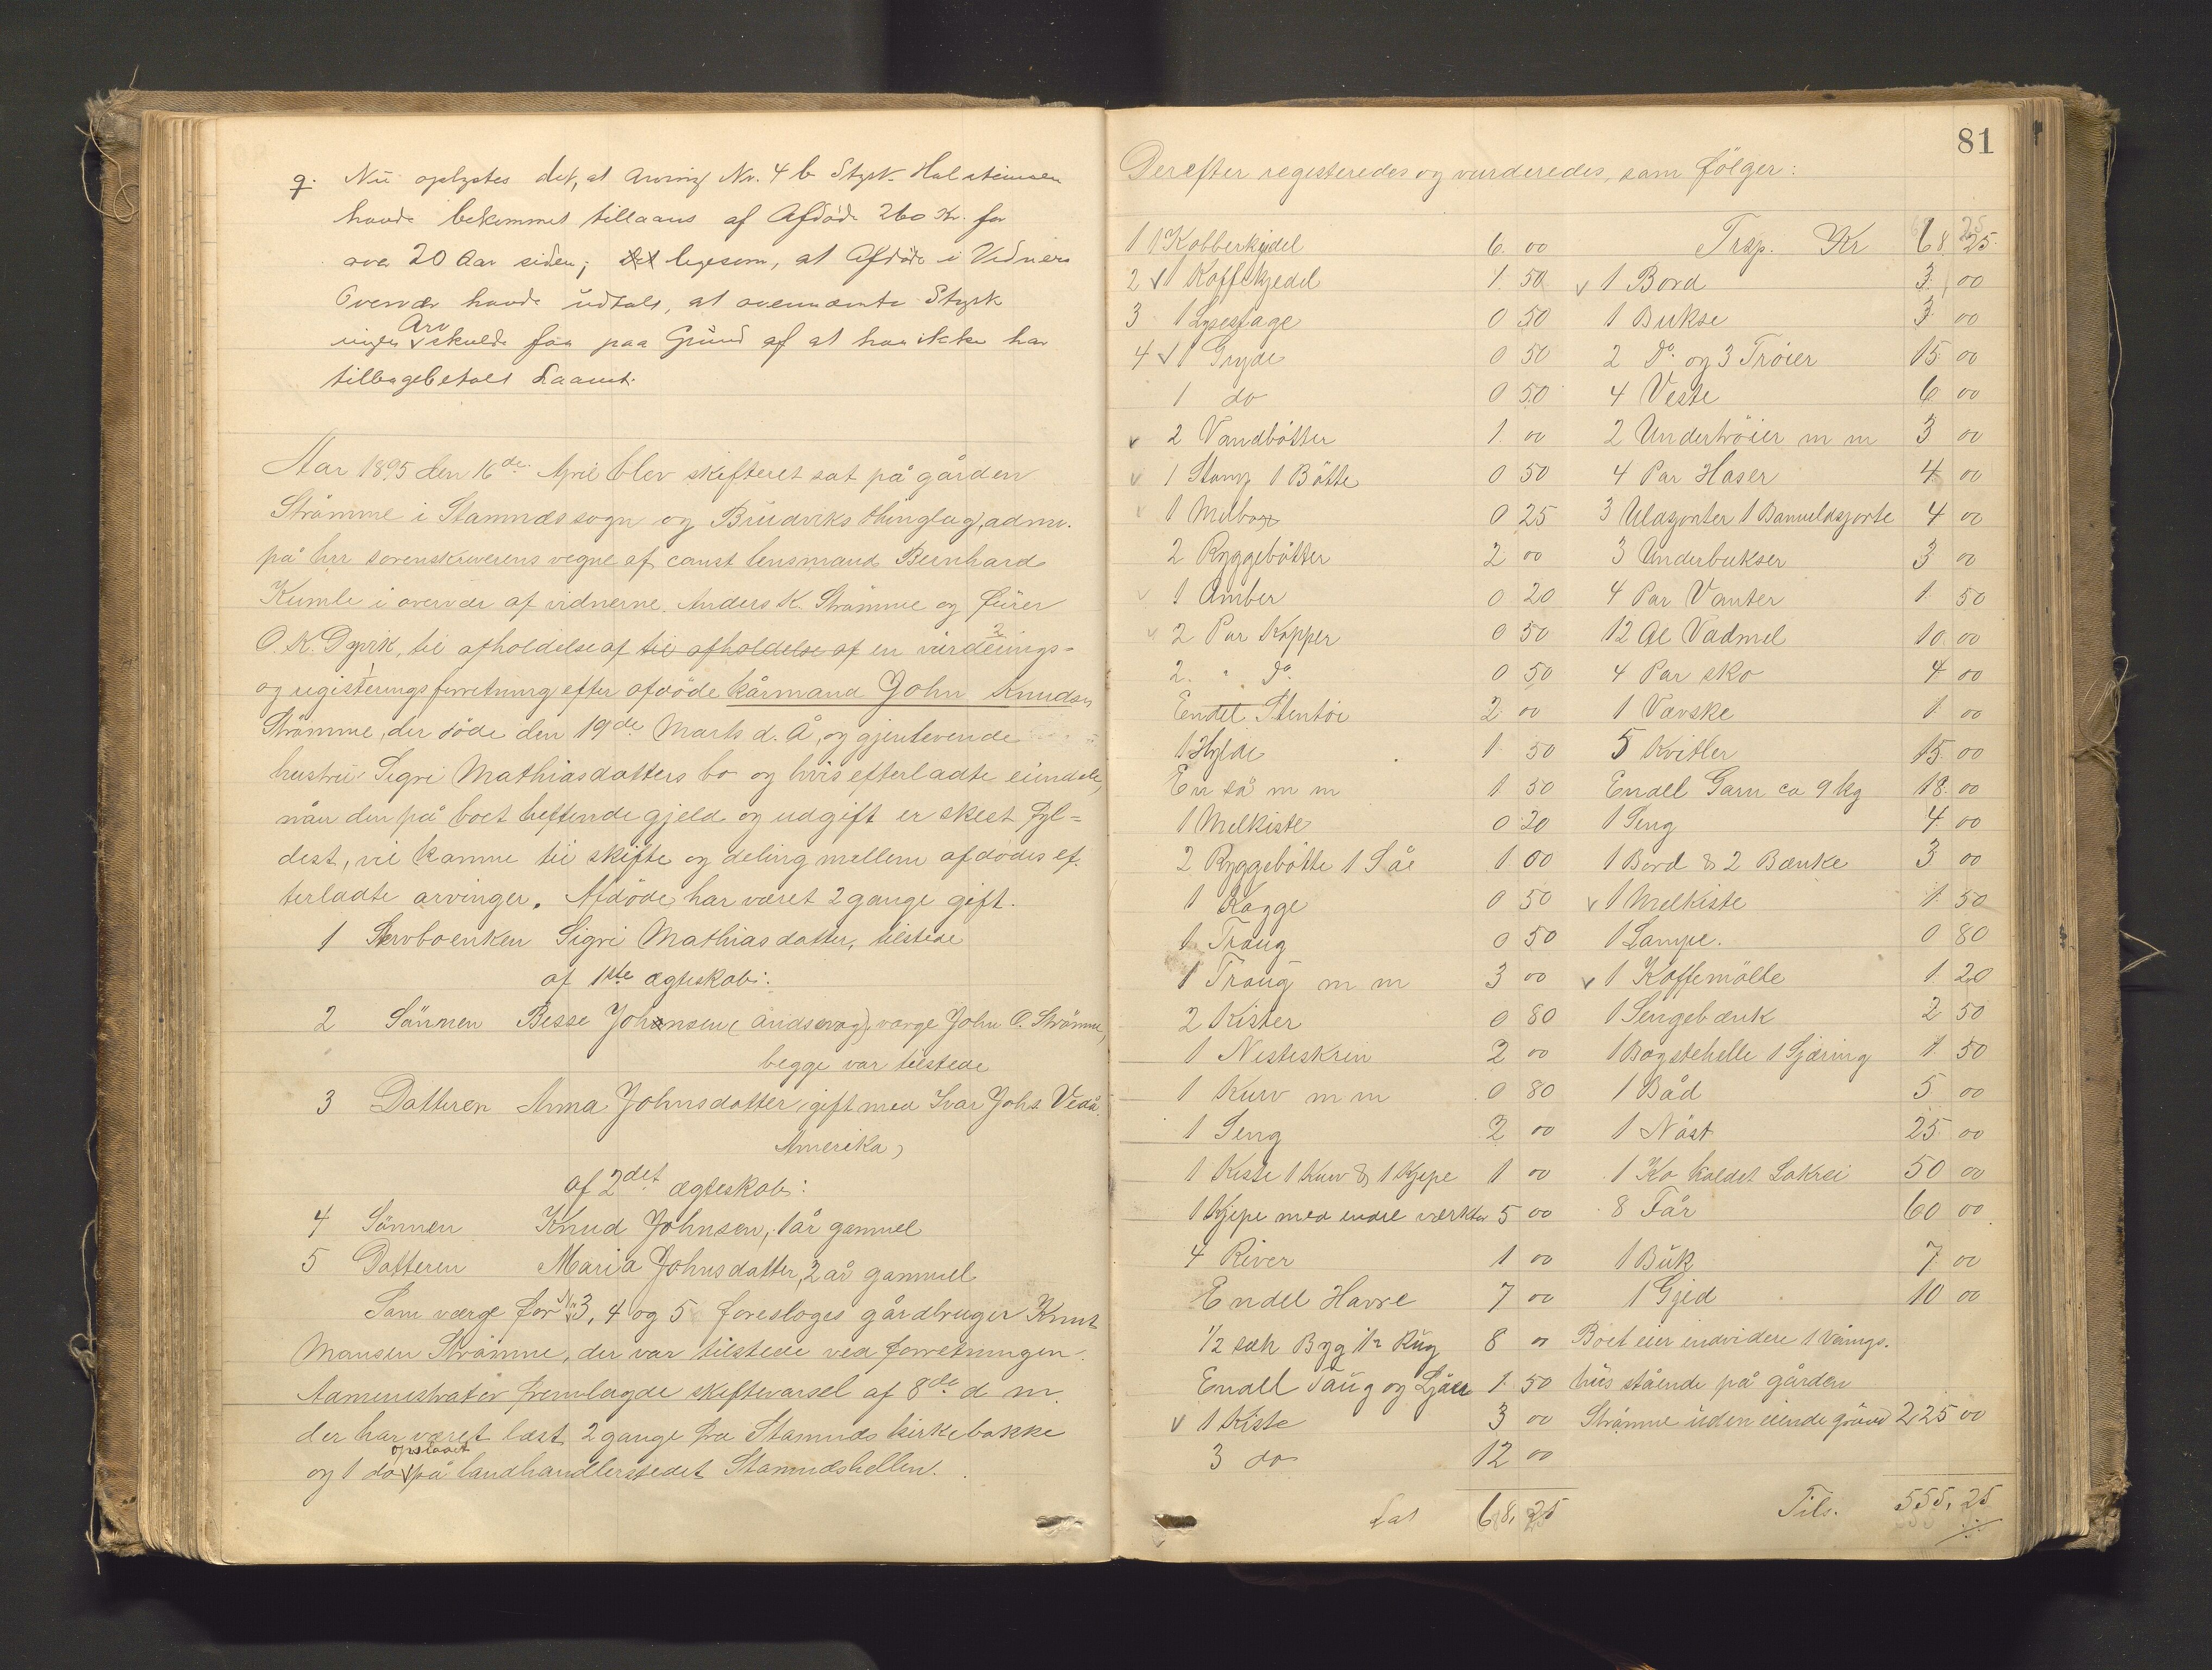 9. Nu oplystes det, at Arving Nr. 4 b Styrk Halsteinsen
havde bekommet tillaans af Afdöde 260 Kr. for
over 20 Aar siden; ligesom, at Afdöde i Vidners
Overvær havde udtalt, at ovennævnte Styrk
ingen Arv skulde faa paa Grund af at han ikke har
tilbagebetalt Laanet.
Aar 1895 den 16de April blev skifteret sat på gården
Strömme i Stamnes sogn og Bruviks thinglag, adm.
på hrr sorenskriverens vegne af const lensmand Bernhard
Kumle i overvær af vidnerne Anders K. Strömme og fører
O. K. Dyvik, til afholdelse af til afholdelse af en vurderings-
og registeringsforretning efter afdöde kårmand John Knudsen
Strömme, der döde den 19de Marts d. Å, og gjenlevende
hustru Sigri Mathiasdatters bo og hvis efterladte eiendele,
når den på boet heftende gjeld og udgift er skeet fyl-
dest, vil komme til skifte og deling mellem afdødes ef-
terladte arvinger. Afdöde har været 2 gange gift.
1 Stervboenken Sigri Mathiasdatter, tilstede
af 1ste ægteskab:
2 Sönnen Besse Johnsen (åndssvag), værge John O. Strömme,
begge var tilstede
3 Datteren Anna Johnsdatter, gift med Ivar Johs. Vedå
Amerika,
af 2det ægteskab:
4 Sönnen Knud Johnsen, 1 år gammel
5 Datteren Maria Johnsdatter, 2 år gammel
Som værge for No 3, 4 og 5 foresloges gårdbruger Knut
Monsen Strömme, der var tilstede ved forretningen.
Administrator fremlagde skiftevarsel af 8de d m.
der har været læst 2 gange fra Stamnes kirkebakke
og 1 do opslaaet på landhandlerstedet Stamneshellen.
81
Derefter registeredes og vurderedes, som fölger:
1 1 Kobberkjedel 6. 00
2 1 Kaffekjedel 1. 50
3 1 Lysestage 0 50
4 1 Gryde 0 50
1 do 0 50
2 Vandbötter 1. 00
1 Stamp 1 Bötte 0 50
1 Melbøe 0 25
2 Ryggebötter 2 00
1 Amber 0 20
2 Par Kopper 0 50
2 " Do 0 50
Endel Stentöi 2 00
1 Hylde 1 50
En så m m 1 50
1 Melkiste 0 20
2 Ryggebötte 1 Såe 1 00
1 Kagge 0 50
1 Traug 0 50
1 Traug m m 3 00
2 Kister 0 80
1 Nisteskrin 2 00
1 Kurv m m 0 80
1 Seng 2 00
1 Kiste 1 Kurv & 1 Kjepe 1 00
1 Kjepe med endel værktøi 5 00
4 River 1 00
Endel Havre 7 00
1/2 sæk Byg 1/2 Rug 8 00
Endel Taug og Ljåer 1 50
1 Kiste 3 00
3 do 12 00
Lat 68, 25
Trsp. Kr 68 25
1 Bord 3 00
1 Bukse 3 00
2 Do og 3 Tröier 15 00
4 Veste 6 00
2 Undertröier m m 3 00
4 Par Haser 4 00
3 Uldsjorter 1 Bomuldsjorte 4 00
3 Underbukser 3 00
4 Par Vanter 1. 50
12 Al Vadmel 10 00
4 Par sko 4 00
1 Væske 1 00
5 Kvitler 15 00
Endel Garn ca 9 kg 18 00
1 Seng 4 00
1 Bord & 2 Bænke 3 00
1 Melkiste 1. 50
1 Lampe. 0 80
1 Kaffemölle 1. 20
1 Sengebænk 2 50
1 Bagstehelle 1 Sjæring 1. 50
1 Båd 5 00
1 Nöst 25 00
1 Ko kaldet Lakrei 50 00
8 Får 60 00
1 Buk 7 00
1 Gjed 10 00
Boet eier endvidere 1 Vånings-
hus stående på gården
Strömme uden eiende grund 225 00
Tils. 555, 25